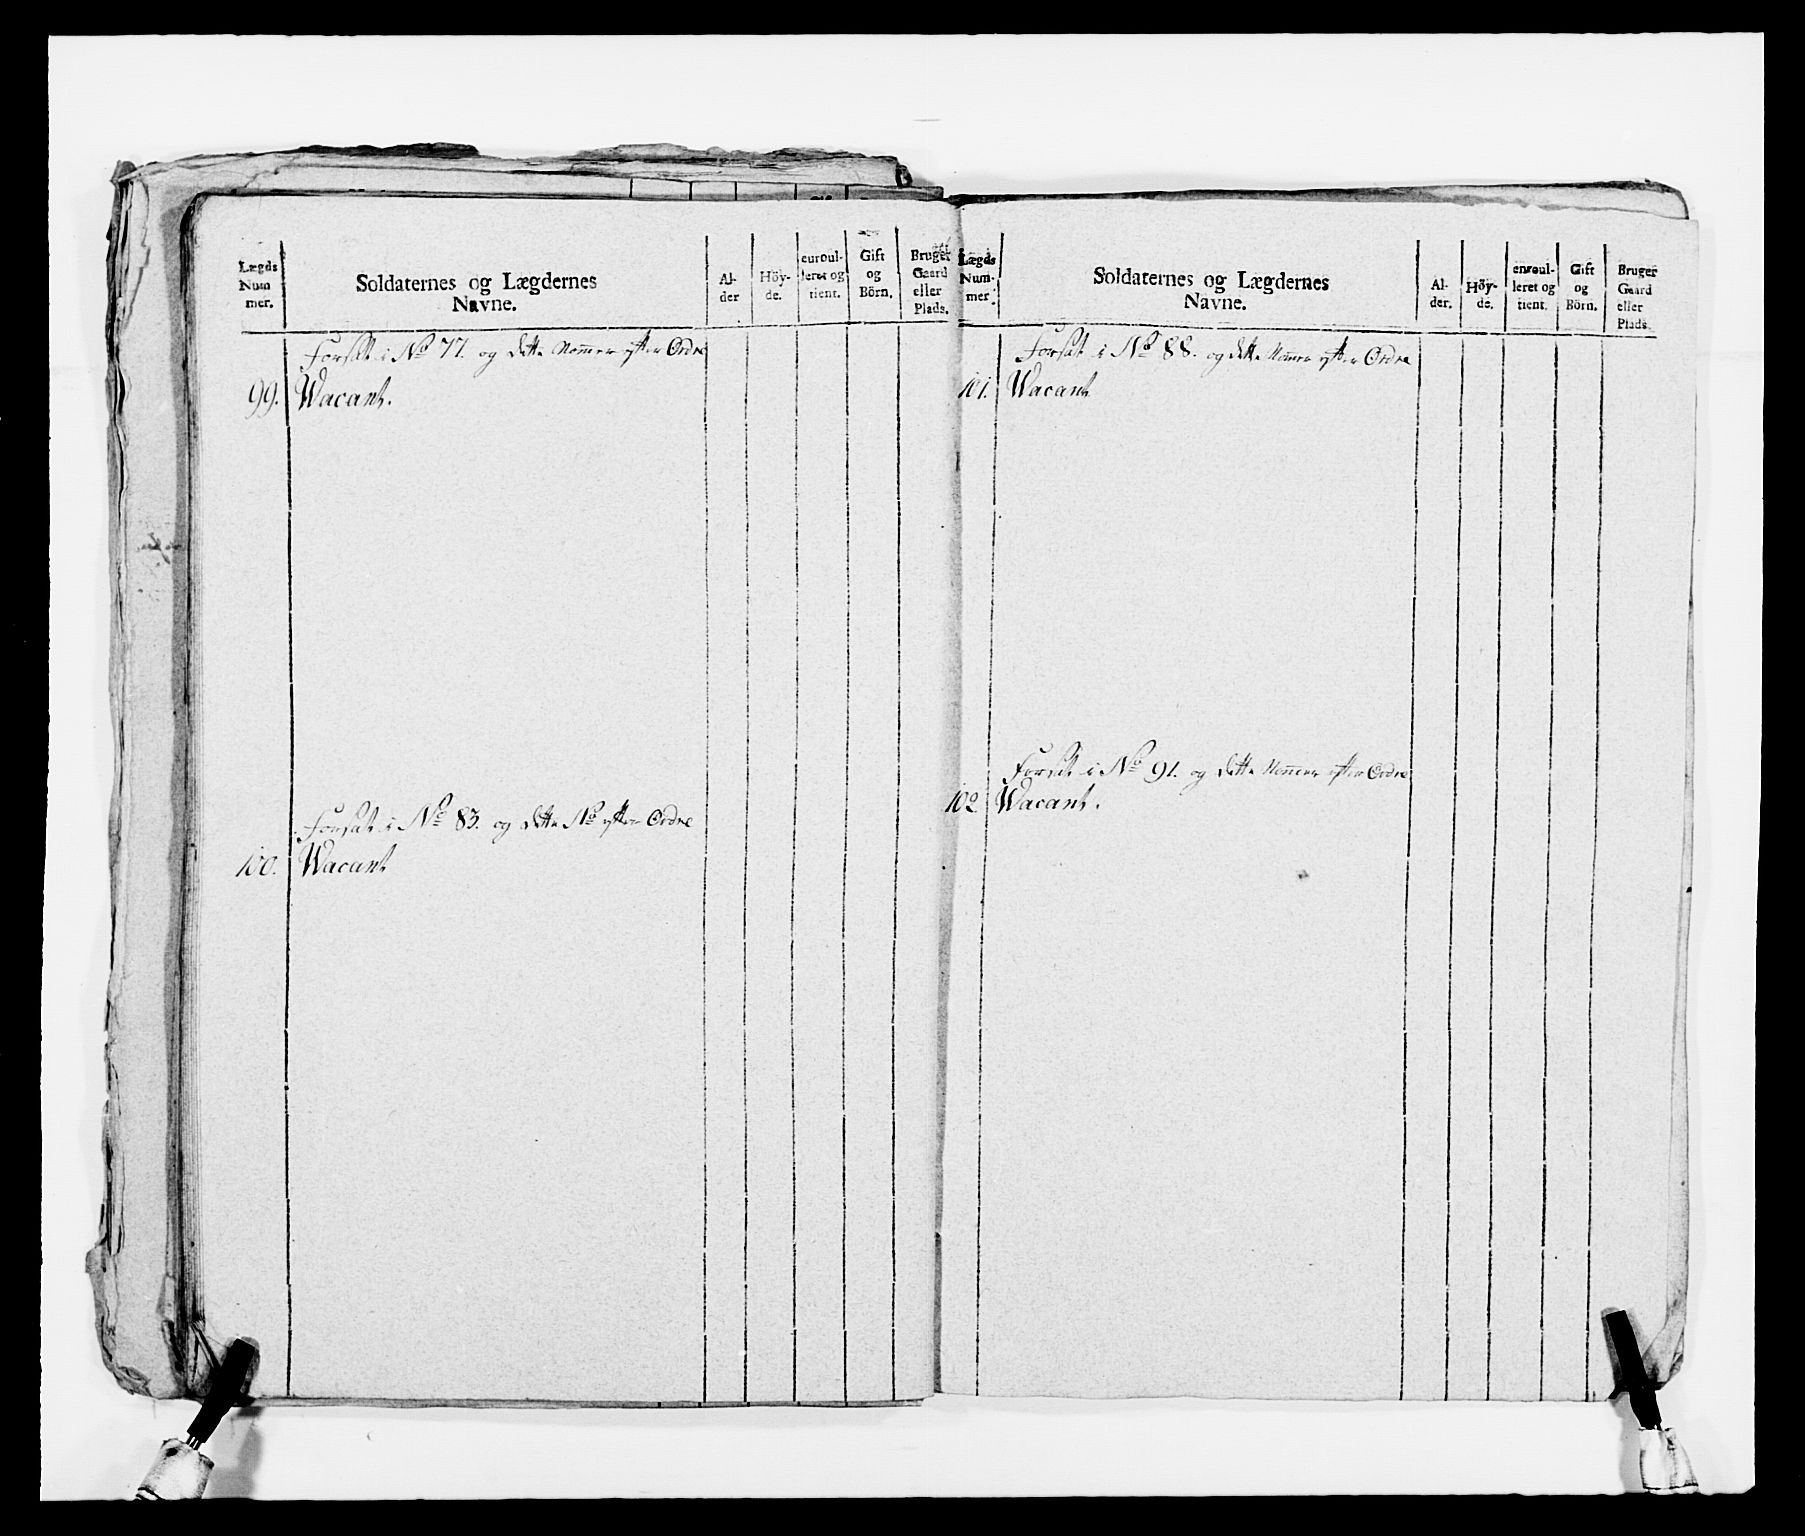 Lægds Num mer.
Soldaternes og Lægdernes Navne.
Al- der
Höy- de.
euroul- leret og tient.
Gift og Börn.
Bruger Gaard eller Plads.
Forsat i No 77. og dette Nom̄er efter Ordre
99. Wacant.
Forsat i No 83. og dette No efter Ordre
100. Wacant
Lægds Num- mer.
Soldaternes og Lægdernes Navne.
Al- der.
Höy- de.
enroul- leret og tient.
Gift og Börn.
Bruger Gaard eller Plads.
Forsat i No 88. og dette Nom̄er efter Ordre
101. Wacant
Forsat i No 91. og dette Nom̄er efter Ordre
102. Wacant.